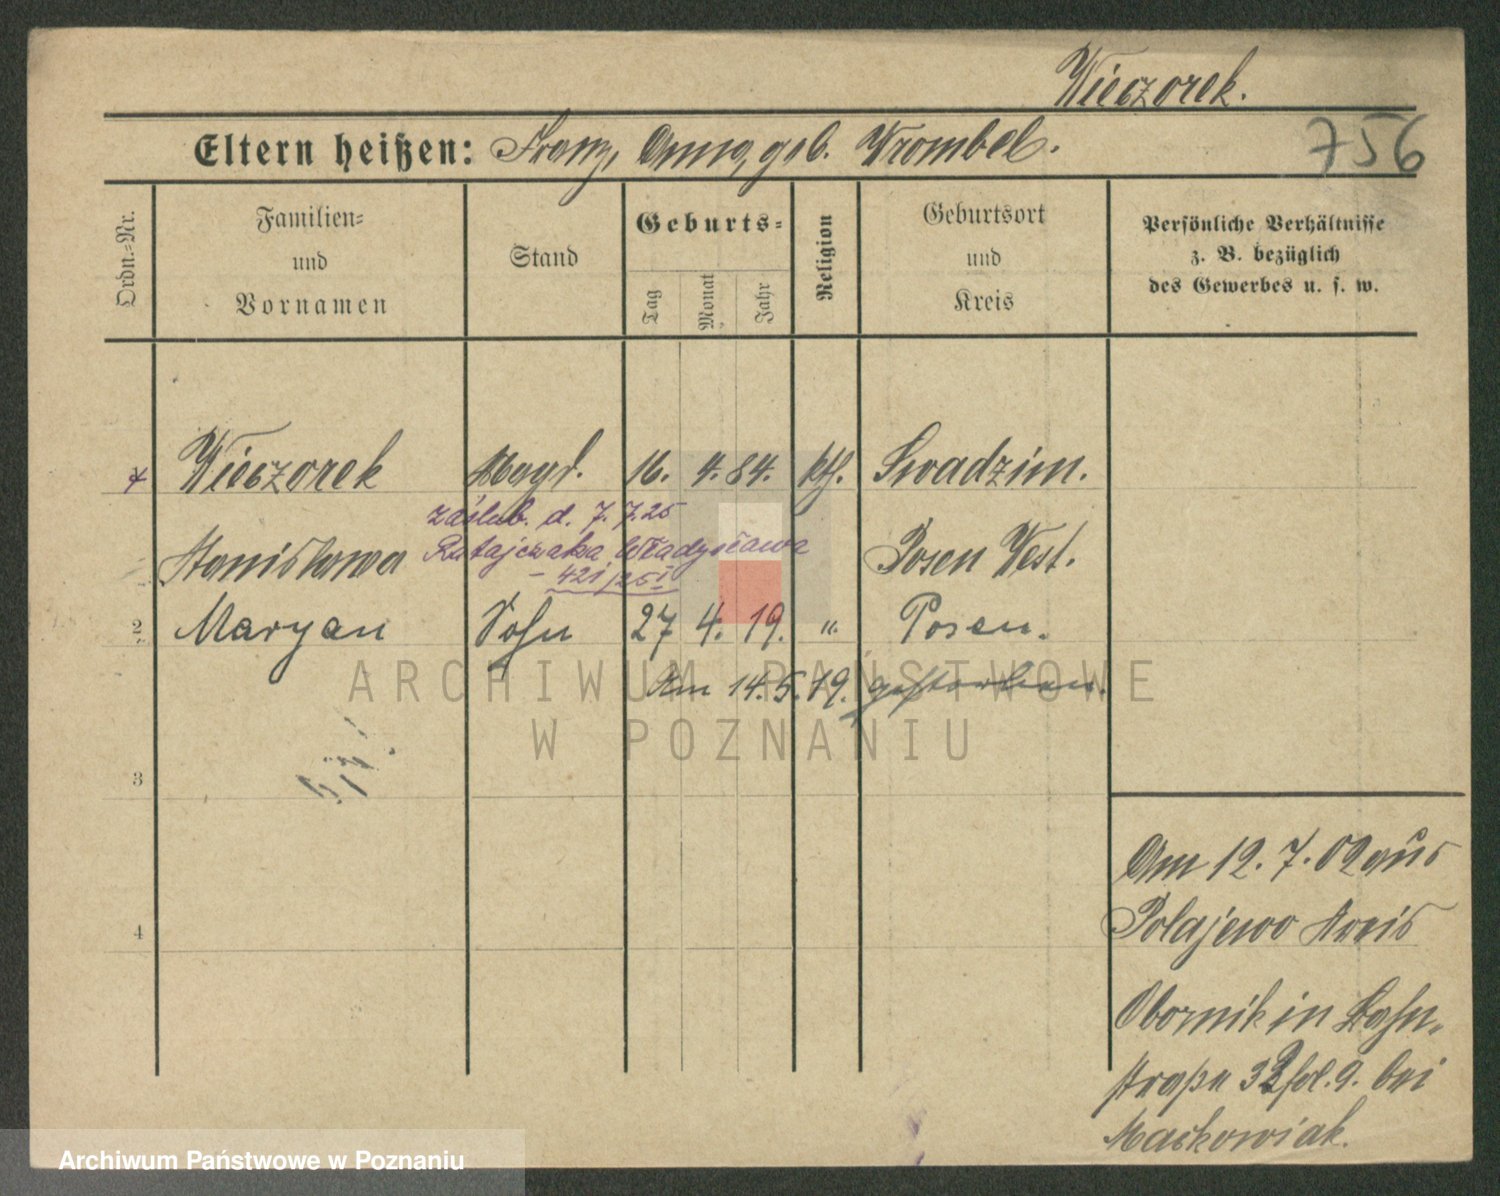 Wieczorek.
Eltern heißen: Franz, Anna, geb. Wrombel.
756
Ordn.=Nr.
Familien=
und
Vornamen
Stand
Geburts=
Tag
Monat
Jahr
Religion
Geburtsort
und
Kreis
Persönliche Verhältnisse
z. B. bezüglich
des Gewerbes u. s. w.
Wieczorek Magd. 16. 4. 84. kth. Swadzim.
záślub. d. 7. 7. 25
Stanislawa Ratajczaka Władysława Posen West.
– 421/25 I
2 Maryan Sohn 27 4. 19. " Posen.
Am 14. 5. 19. gestorben.
3
4
Am 12. 7. 02 aus
Polajewo Kreis
Obornik in Bahn-
straße 33 fol. 9. bei
Maćkowiak.
ARCHIWUM PAŃSTWOWE
W POZNANIU
Archiwum Państwowe w Poznaniu